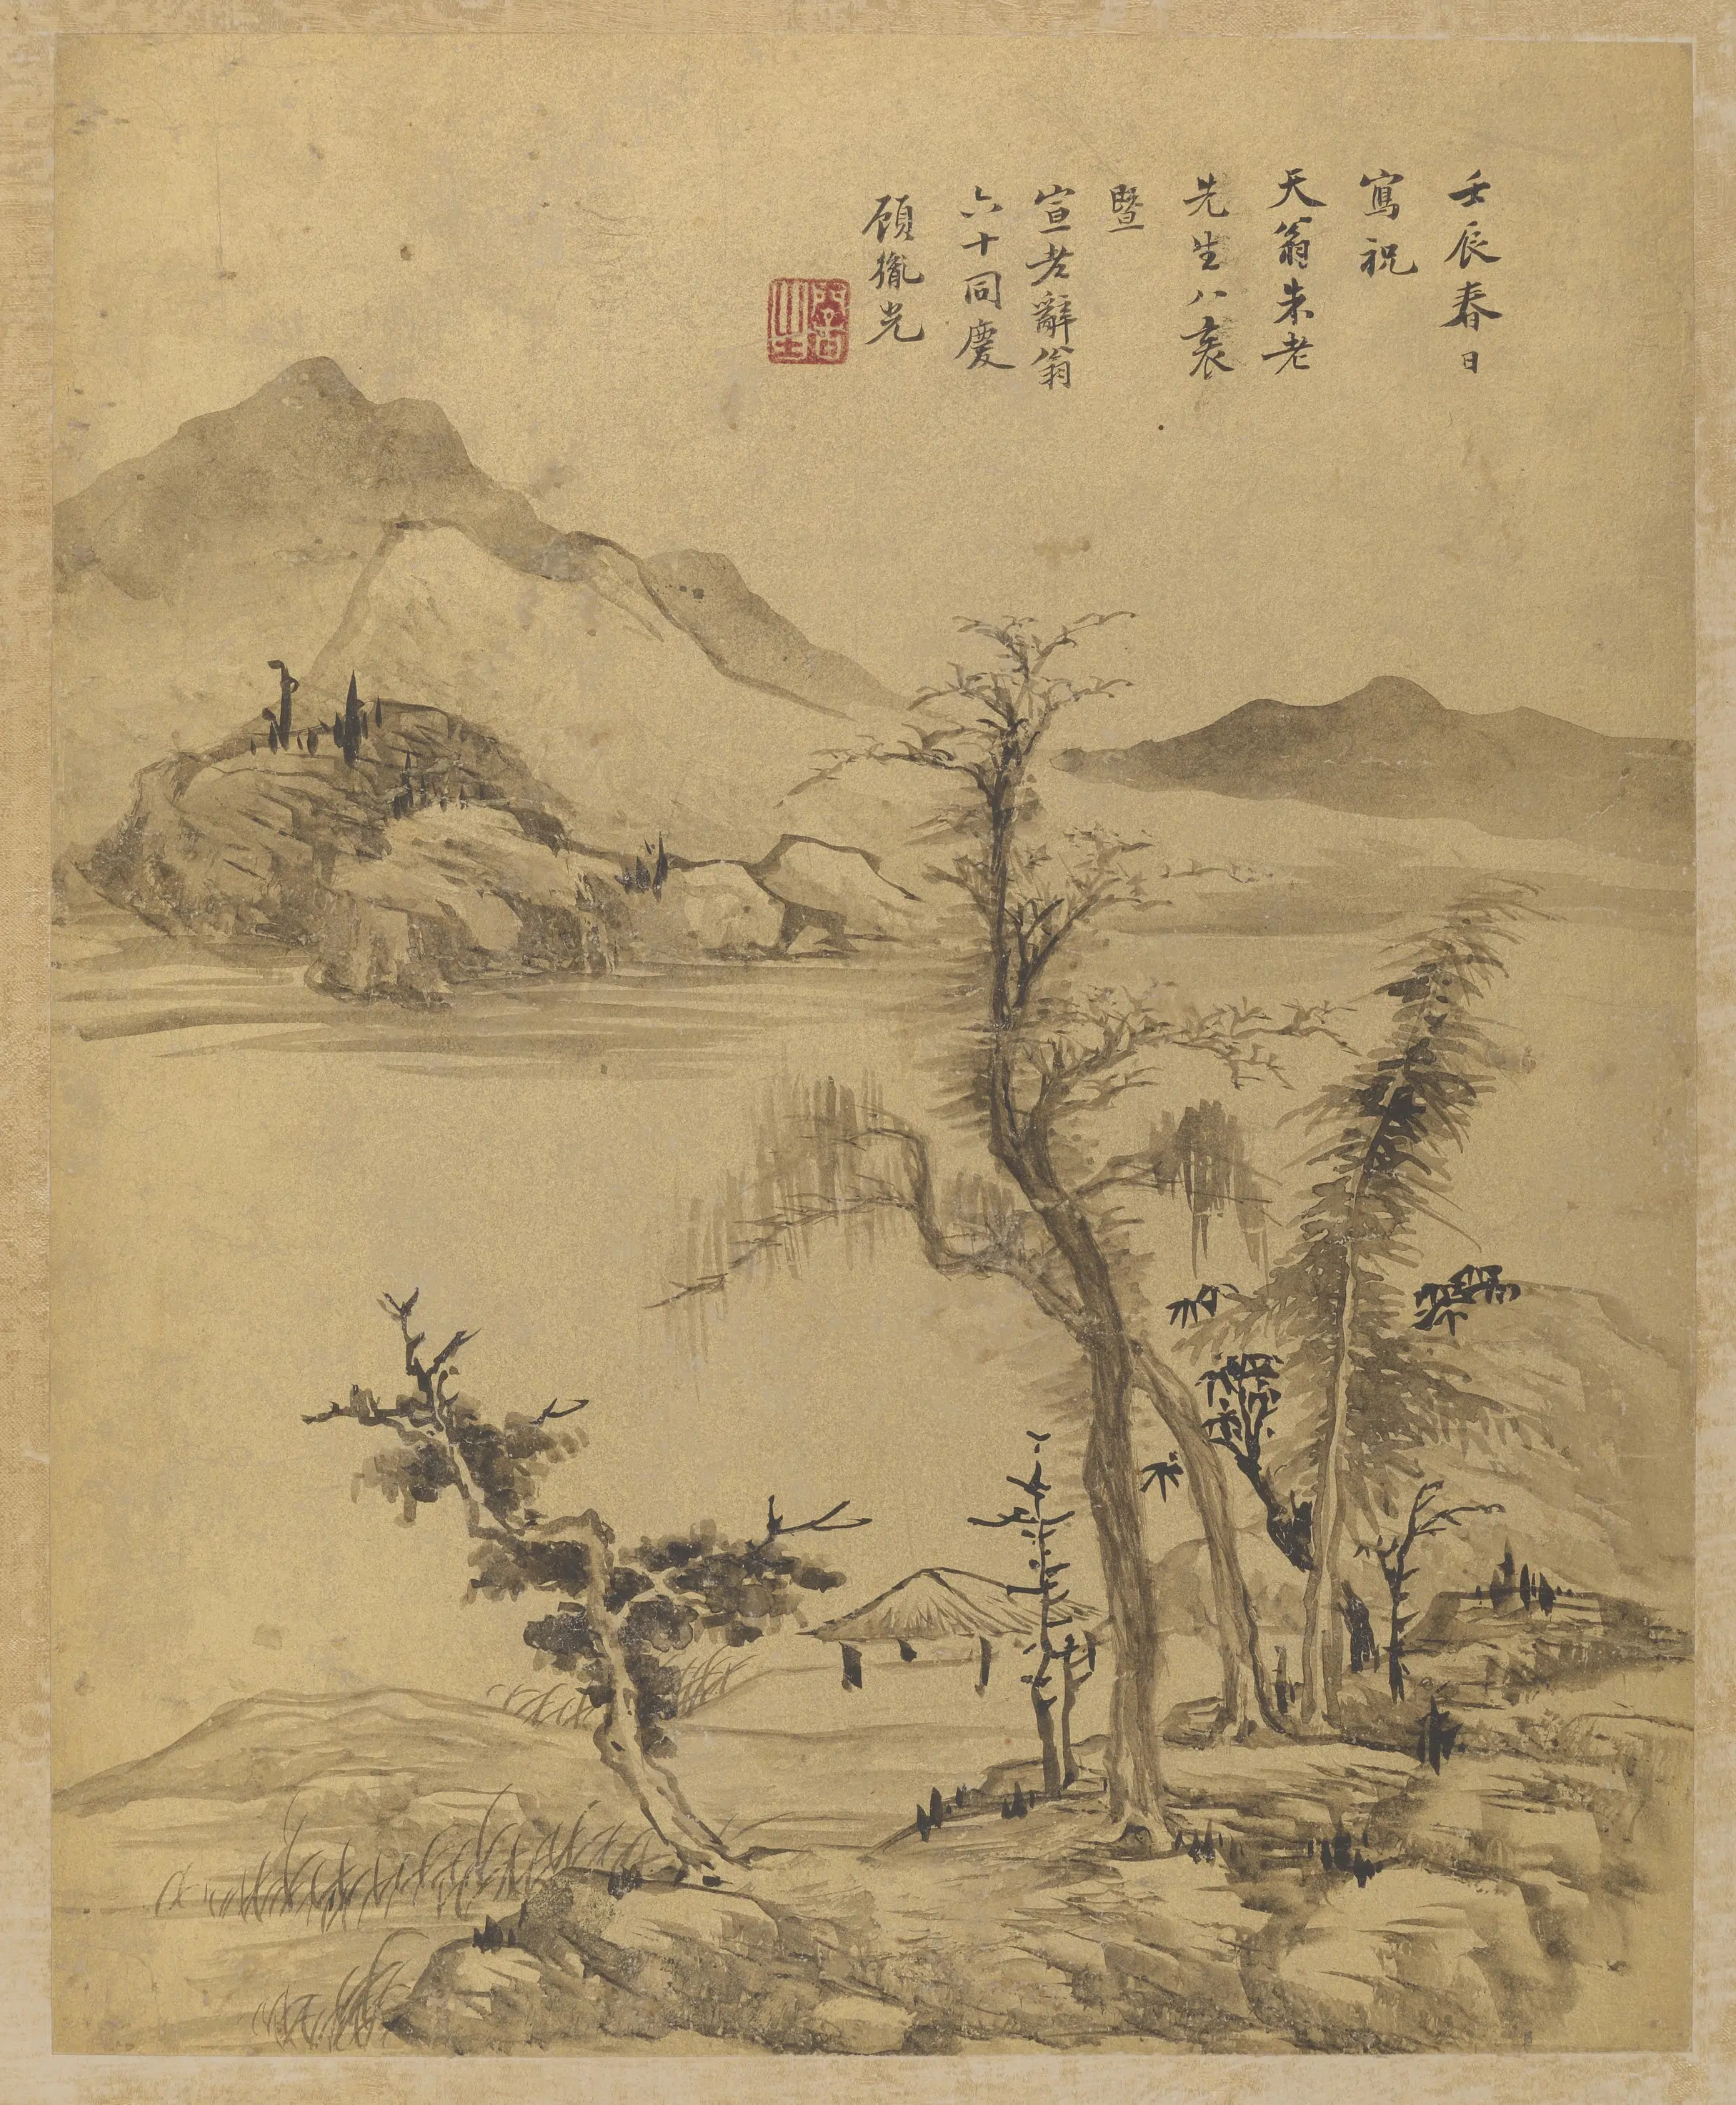 壬辰春日
寫祝
天翁朱老
先生八袠
暨
宣老辭翁
六十同慶
顧胤光